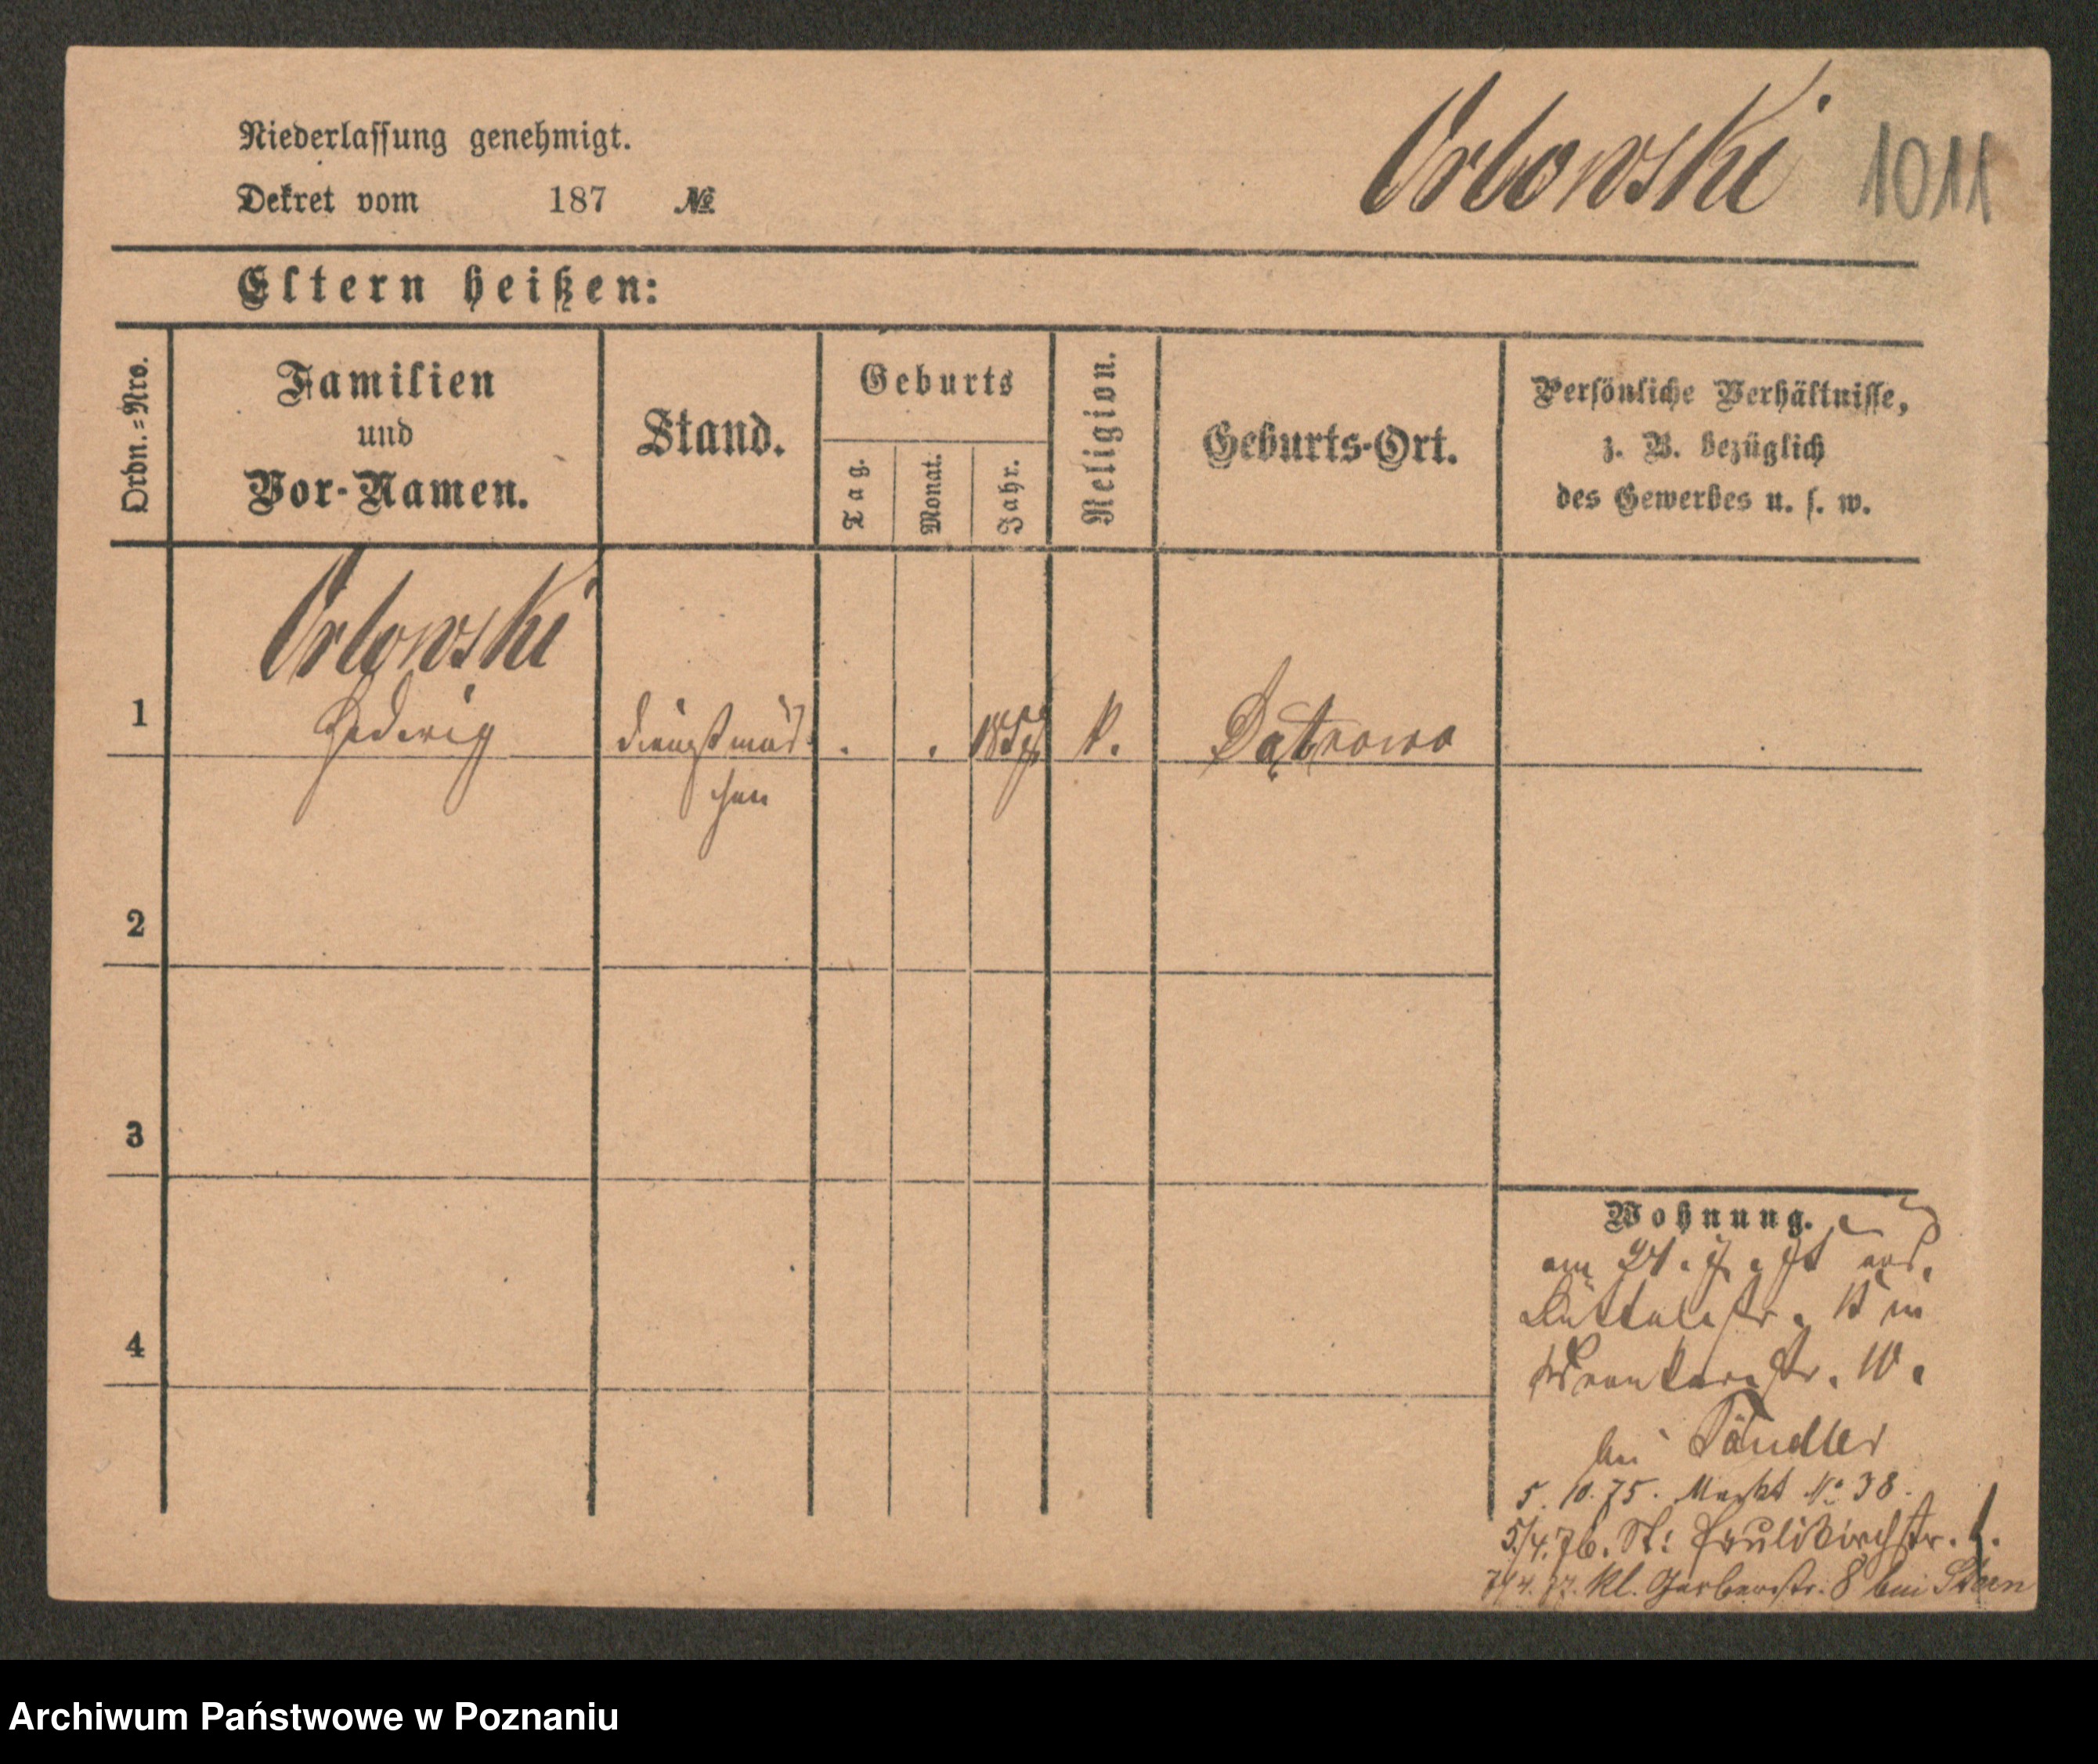 Niederlassung genehmigt.
Dekret vom 187 №
Orlowski 1011
Eltern heißen:
Ordn.=Nro.
Familien
und
Vor-Namen.
Stand.
Geburts
Tag.
Monat.
Jahr.
Religion.
Geburts-Ort.
Persönliche Verhältnisse,
z. B. bezüglich
des Gewerbes u. s. w.
Orlowski
1 Hedwig Dienstmäd k.
chen
2
3
4
Wohnung.
am
Büttelstr. 15 in
Wronkerstr. 10.
bei Tändler
5. 10. 75. Markt № 38.
5/4. 76. St: Paulikirchstr.
Kl. Gerberstr. 8 bei Stern
Archiwum Państwowe w Poznaniu